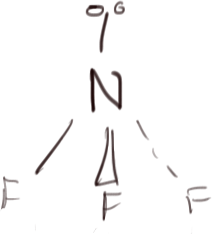 N
F F F